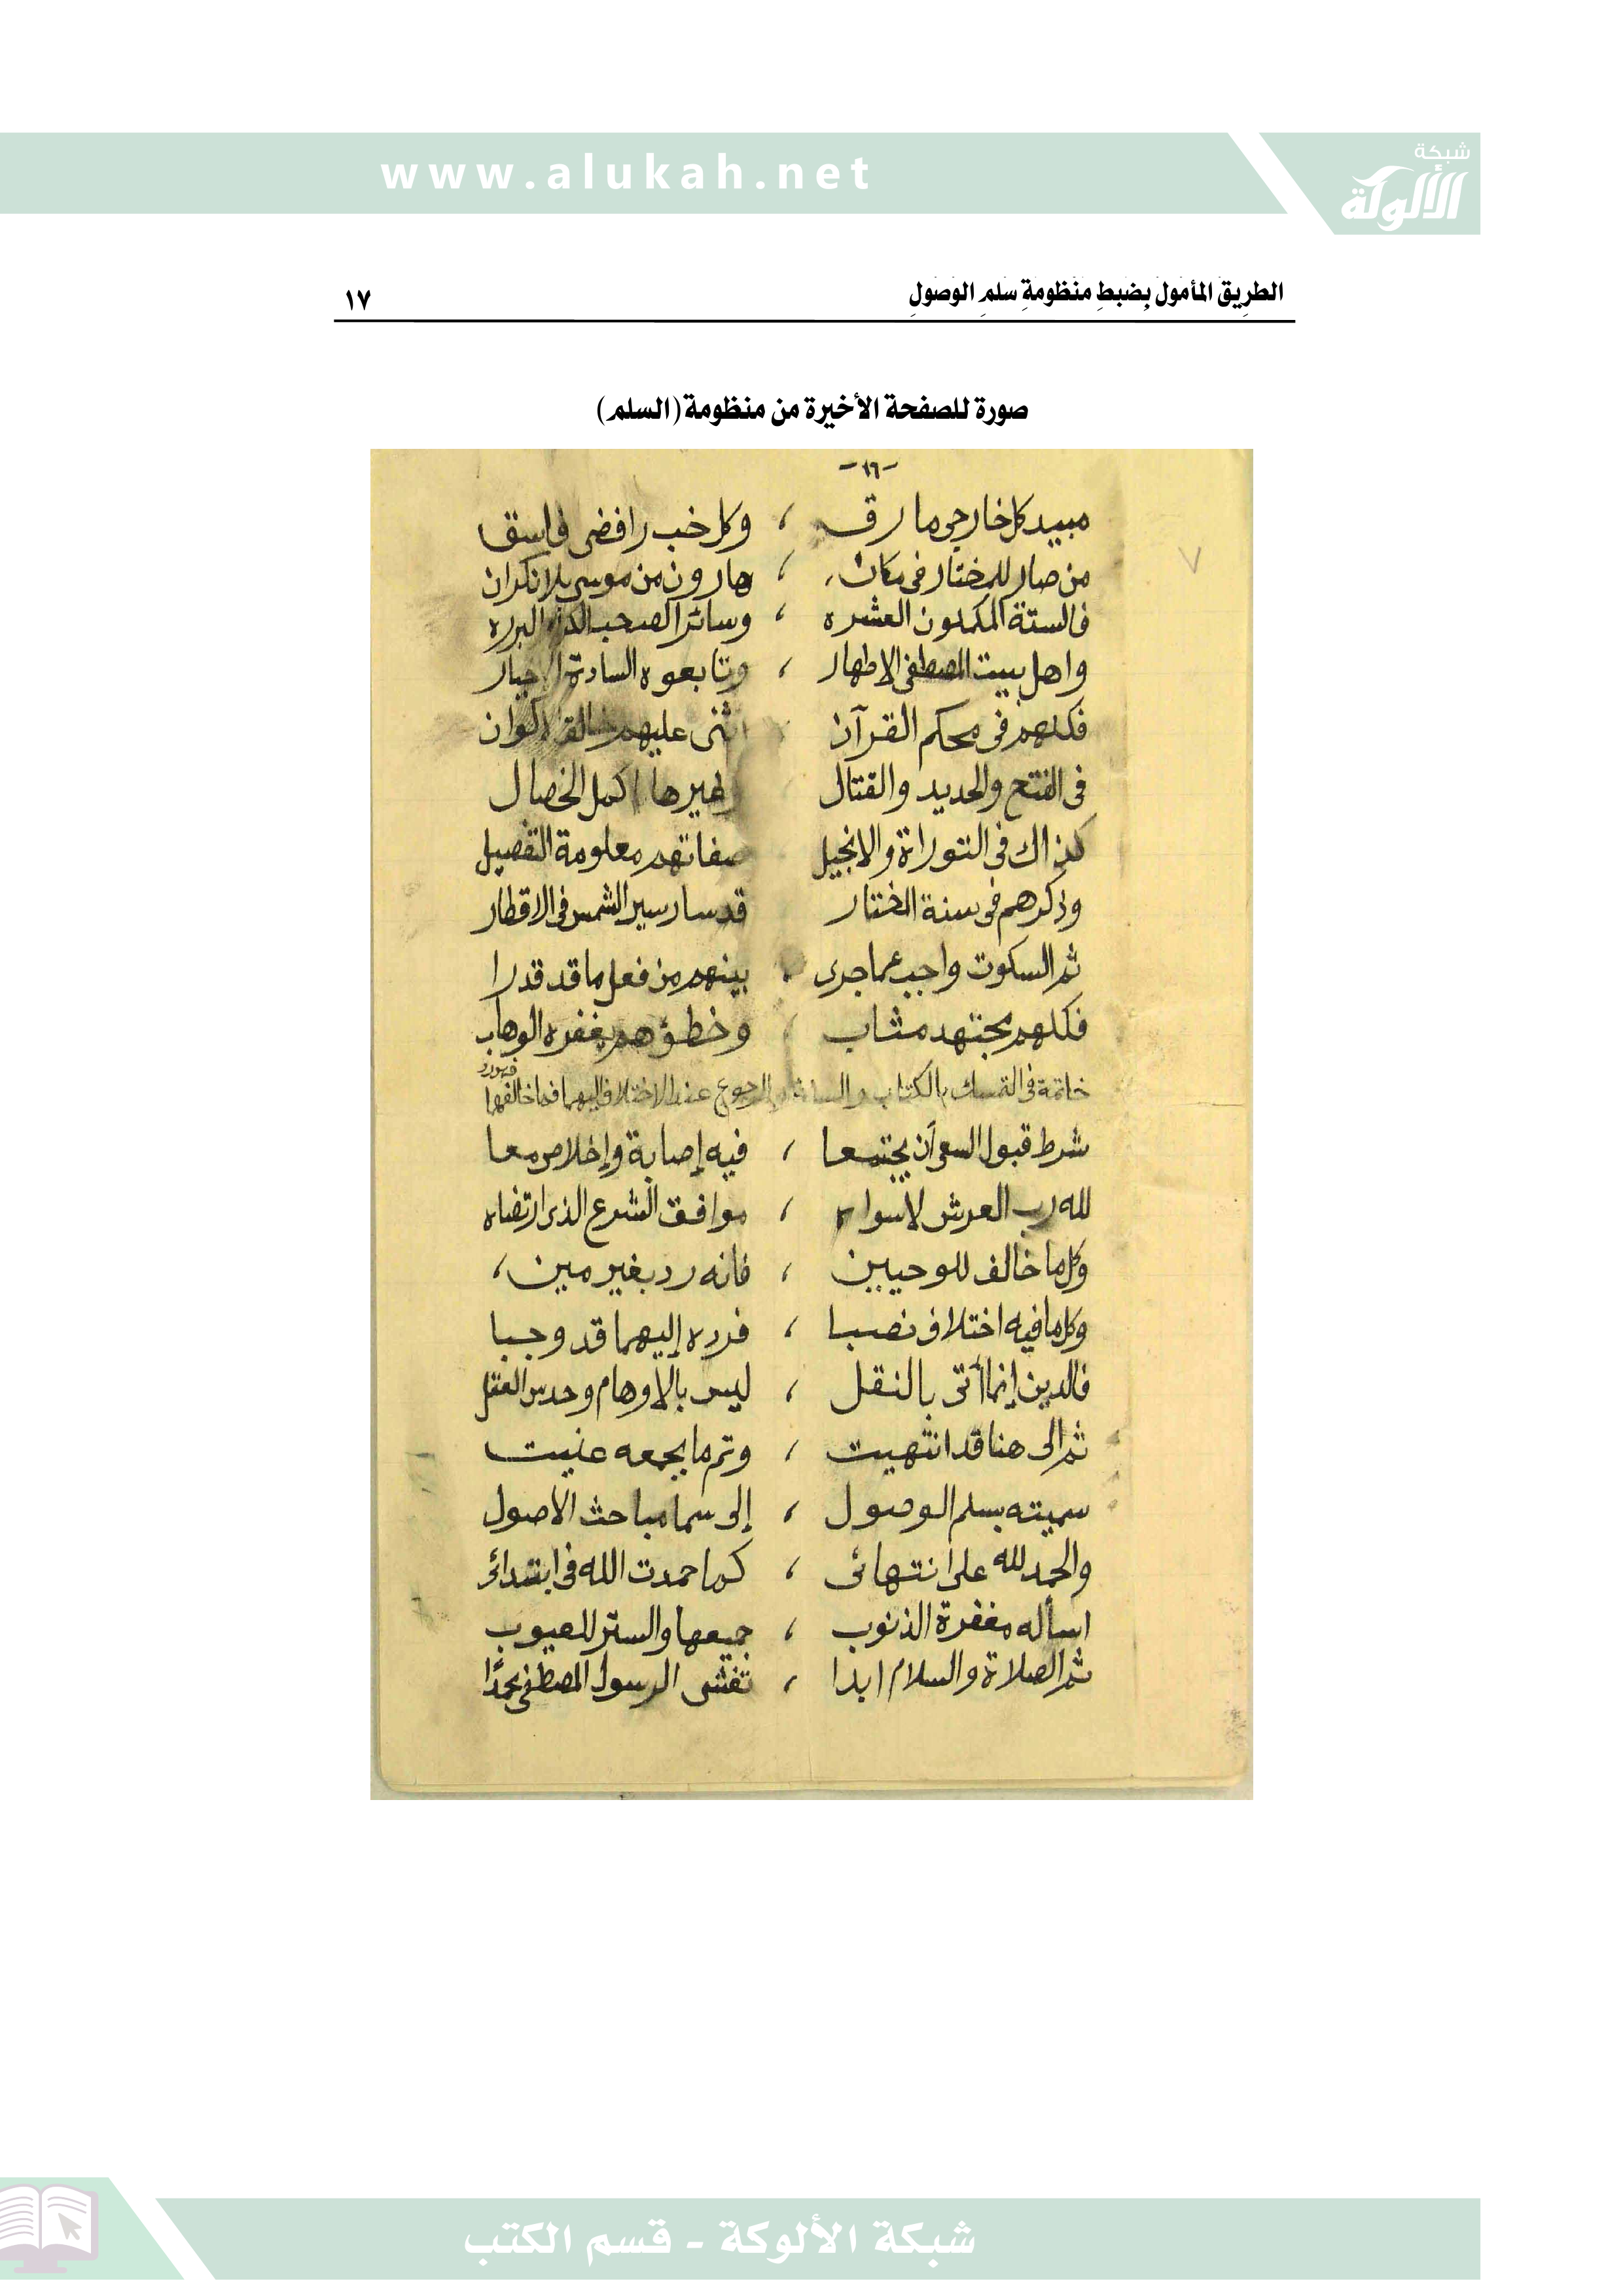 www.alukah.net
شبكة
الألوكة
الطريق المأمول بضبط منظومة سلم الوصول ١٧
صورة للصفحة الأخيرة من منظومة (السلم)
-١٦-
مبيد كل خارجي مارق ، وكل خب رافضى فاسق
من صار للمختار فى مكان ، هارون من موسى بلا نكران
فالستة المكملون العشره ، وسائر الصحب الكرام البرره
واهل بيت المصطفى الاطهار ، وتابعوه السادة الاخيار
فكلهم فى محكم القرآن اثنى عليهم خالق الاكوان
فى الفتح والحديد والقتال وغيرها اكمل الخصال
كذاك فى التوراة والانجيل صفاتهم معلومة التفصيل
وذكرهم فى سنة المختار قد سار سير الشمس فى الاقطار
ثم السكوت واجب عما جرى ، بينهم من فعل ما قد قدرا
فكلهم مجتهد مثاب ، وخطؤهم يغفره الوهاب
خاتمة فى التمسك بالكتاب والسنة والرجوع عند الاختلاف اليهما فما خالفهما فهو رد
شرط قبول السعى أن يجتمعا ، فيه إصابة وإخلاص معا
لله رب العرش لا سواه ، موافق الشرع الذى ارتضاه
وكل ما خالف للوحيين ، فانه رد بغير مين ،
وكل ما فيه اختلاف نصبا ، فرده إليهما قد وجبا
فالدين إنما أتى بالنقل ، ليس بالاوهام وحدس العقل
ثم الى هنا قد انتهيت ، وتم ما بجمعه عنيت
سميته بسلم الوصول ، إلى سما مباحث الأصول
والحمد لله على انتهائى ، كما حمدت الله فى ابتدائى
اسأله مغفرة الذنوب ، جميعها والستر للعيوب
ثم الصلاة والسلام ابدا ، تغشى الرسول المصطفى محمدًا
شبكة الألوكة - قسم الكتب